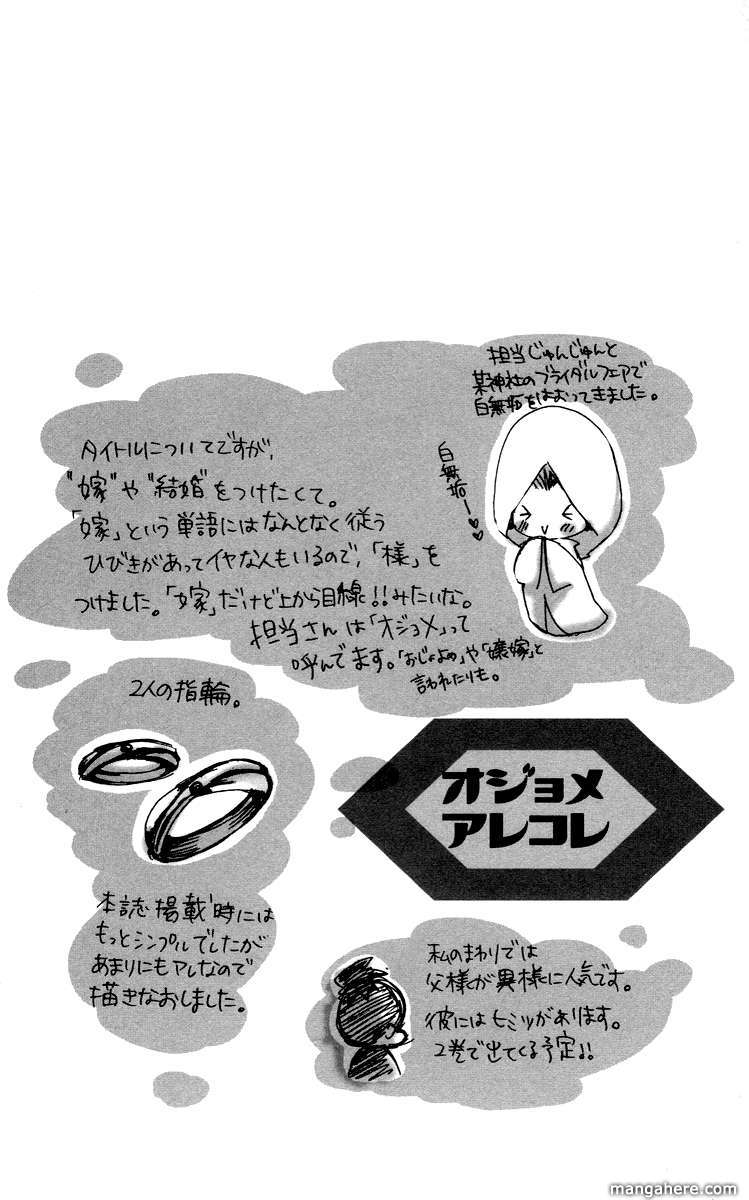 担当じゅんじゅんと
某神社のブライダルフェアで
白無垢をはおってきました。
白無垢ー♥♥
タイトルについてですが、
"嫁"や"結婚"をつけたくて。
「嫁」という単語にはなんとなく従う
ひびきがあってイヤな人もいるので、「様」を
つけました。「嫁」だけど上から目線!!みたいな。
担当さんは「オジョメ」って
呼んでます。「おじょよめ」や「嬢嫁」と
言われたりも。
2人の指輪。
本誌掲載時には
もっとシンプルでしたが
あまりにもアレなので
描きなおしました。
オジョメ
アレコレ
私のまわりでは
父様が異様に人気です。
彼にはヒミツがあります。
2巻で出てくる予定!!
mangahere.com